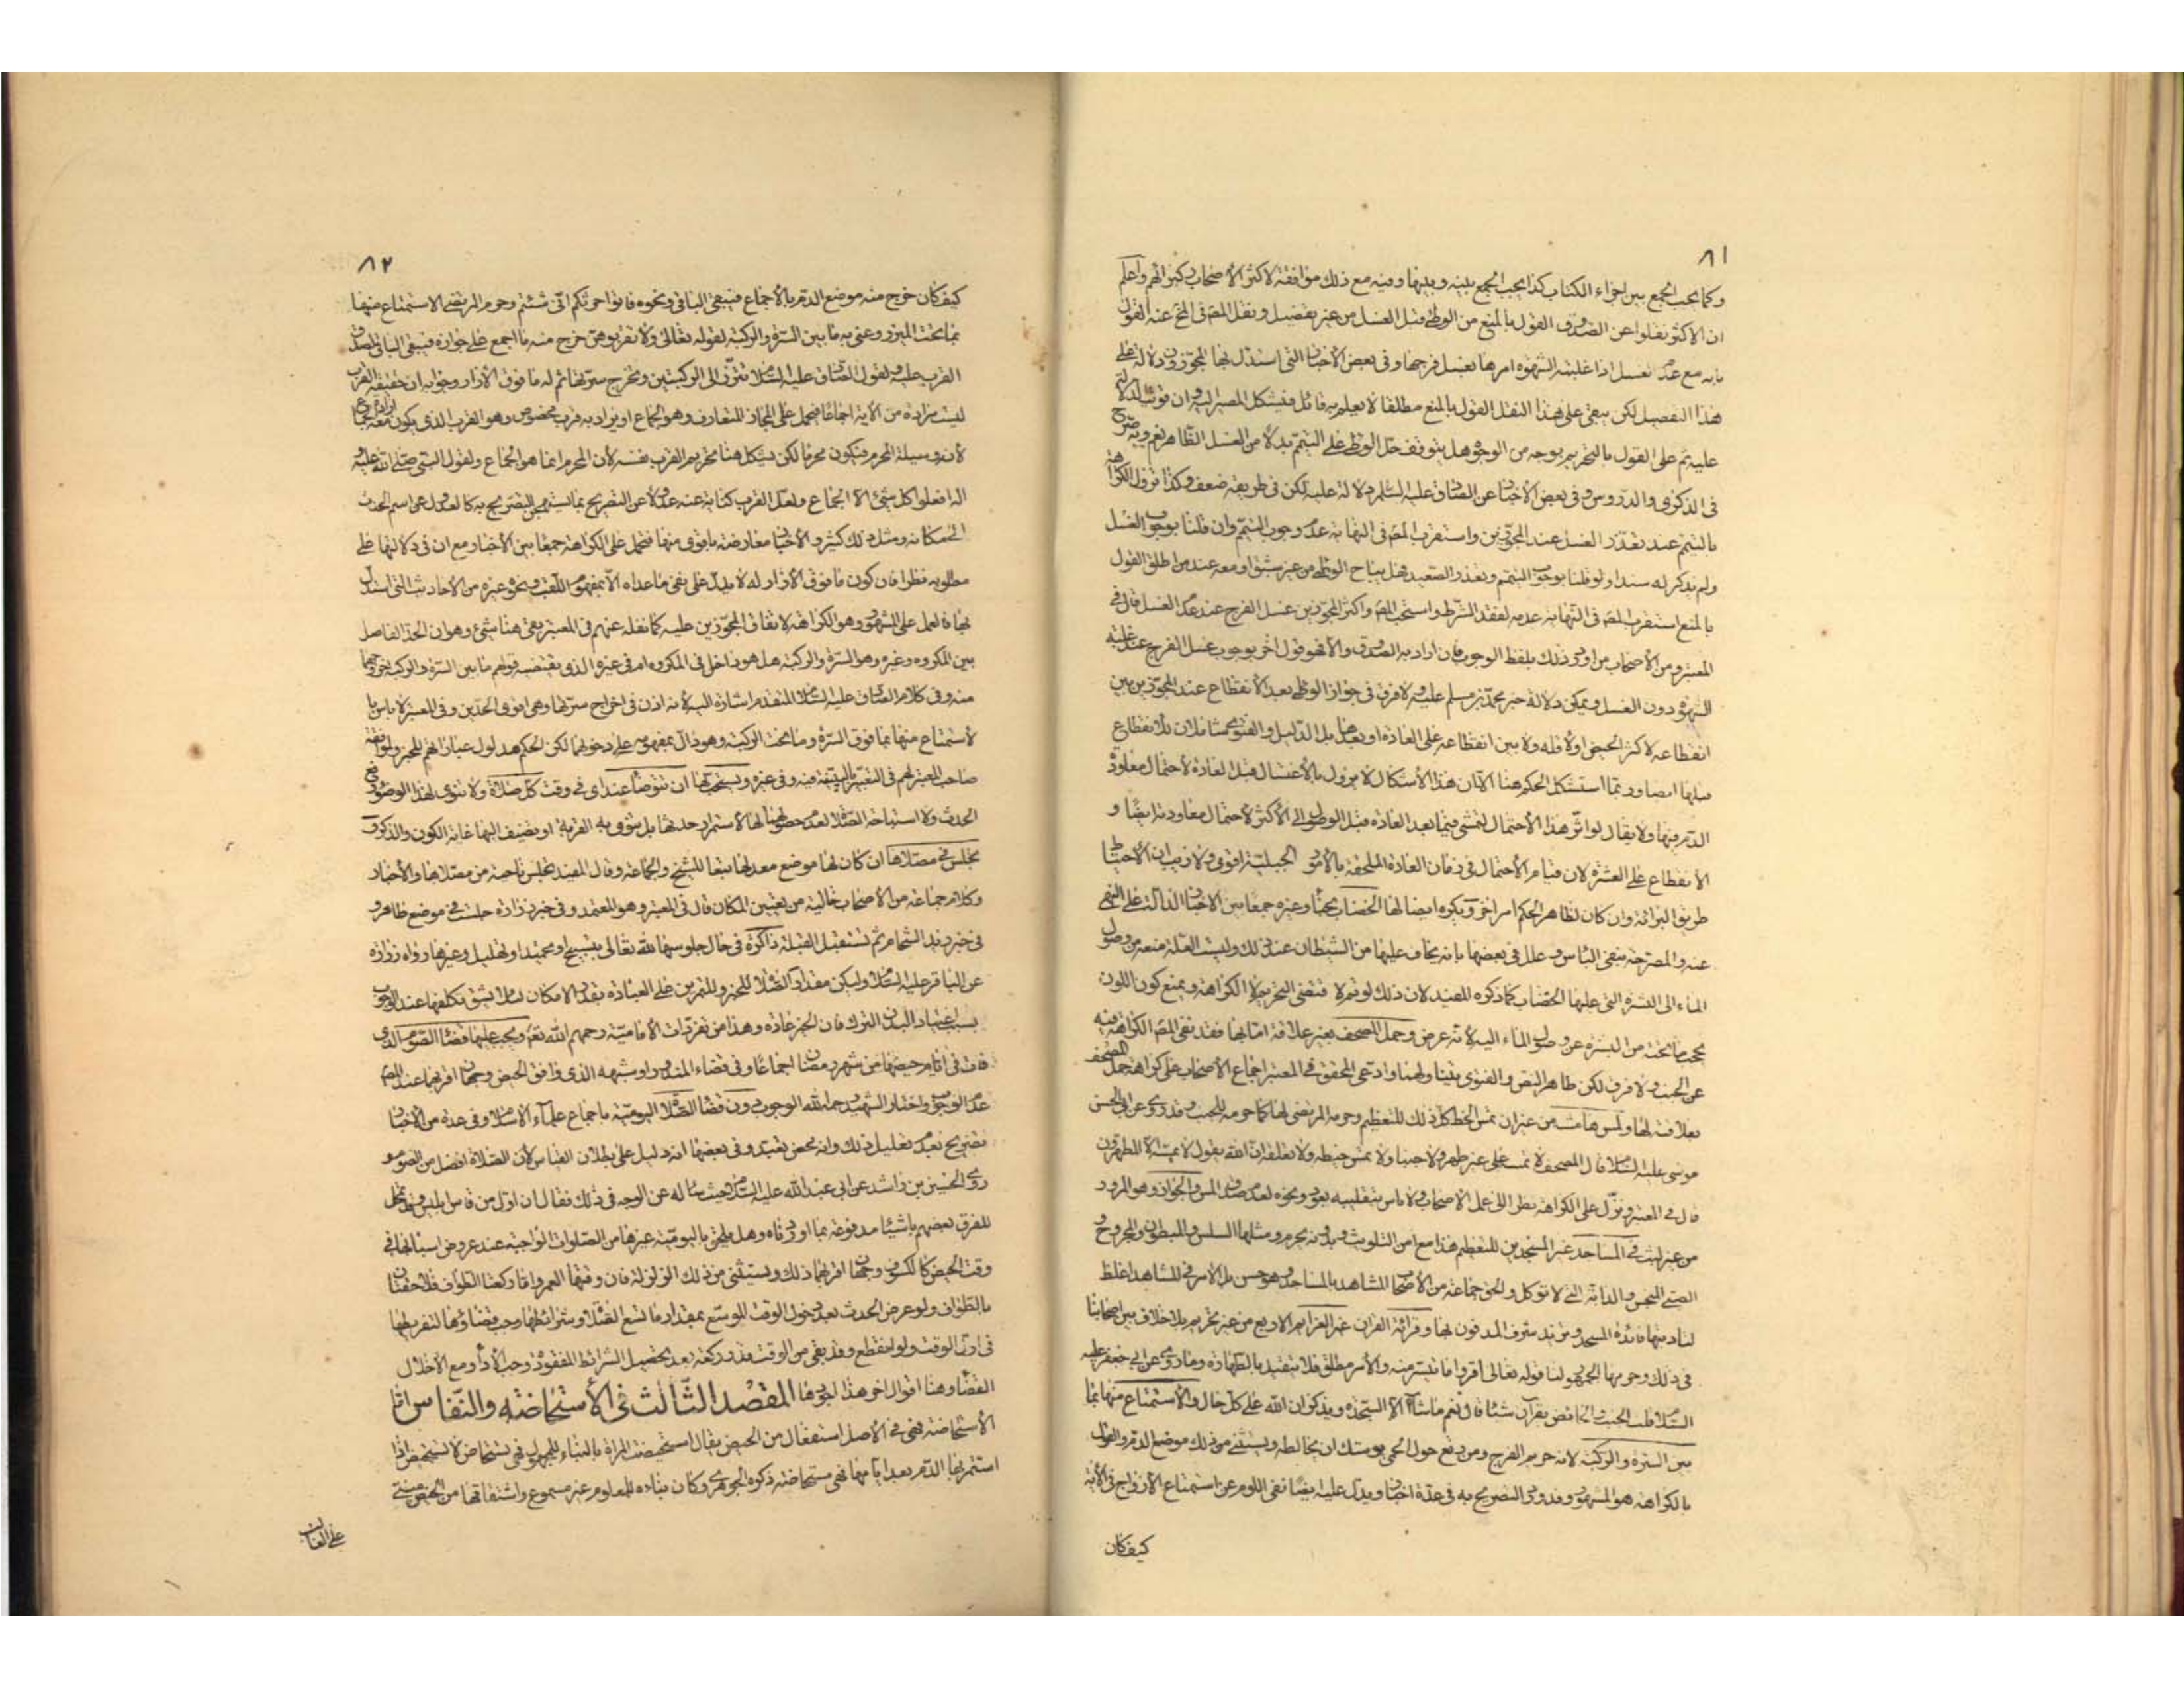 ٨١
وكما يجب الجمع بين اجزاء الكتاب كذا يجب الجمع بينه وبينها وفيه مع ذلك موافقة لاكثر الاصحاب واعلم
ان الاكثر نقلوا عن الصدوق القول بالمنع من الوطئ قبل الغسل من غير تفصيل ونقل المصّ في المخ عنه القول
بانه مع عدم تغسل اذا غلبته الشهوة امرها بغسل فرجها وفي بعض الاخبار التي استدل بها المجوزون دلالة على
هذا التفصيل لكن يبقى على هذا النقل القول بالمنع مطلقا لا يعلم به قائل فيشكل المصير اليه وان قويت
عليه ثم على القول بالتحريم بوجه من الوجوه هل يتوقف حل الوطئ على التيمم بدلا من الغسل الظاهر نعم وبه صرح
في الذكرى والدروس وفي بعض الاخبار عن الصادق عليه السلام دلالة عليه لكن في طريقه ضعف وكذا تزول الكراهة
بالتيمم عند تعذر الغسل عند المجوزين واستقرب المصّ في النهاية عدم وجوب التيمم وان قلنا بوجوب الغسل
ولم يذكر له سندا ولو قلنا بوجوب التيمم وتعذر الصعيد فهل يباح الوطئ من غير شبق او معه عند من اطلق القول
بالمنع استقرب المصّ في النهاية عدمه لفقد الشرط واستحب المصّ واكثر المجوزين غسل الفرج عند عدم الغسل قال في
المعتبر ومن الاصحاب من اورد ذلك بلفظ الوجوب فان اراد به الصدوق والا فهو قول اخر بوجوب غسل الفرج عند غلبة
الشهوة دون الغسل ويمكن دلالة خبر محمد بن مسلم عليه ولا فرق في جواز الوطئ بعد الانقطاع عند المجوزين بين
انقطاعه لاكثر الحيض او لاقله ولا بين انقطاعه على العادة او بعدها بل الدليل والفتوى شاملان للانقطاع
قبلها ايضا وربما استشكل الحكم هنا الا ان هذا الاشكال لا يزول بالاغتسال قبل العادة لاحتمال معاودة
الدم فيها ولا يقال لو اثر هذا الاحتمال لتمشى فيما بعد العادة قبل الوصول الى الاكثر لاحتمال معاودته ايضا و
الانقطاع على العشرة لان قيام الاحتمال في زمان العادة الملحقة بالامور الجبلية اقوى ولا ريب ان الاحتياط
طريق البراءة وان كان لظاهر الحكم امر اخر ويكره ايضا لها الخضاب بحناء وغيره جمعا بين الاخبار الدالة على النهي
عنه والمصرحة بنفي الباس وعلل في بعضها بانه يخاف عليها من الشيطان عند ذلك وليست العلة منعه من وصول
الماء الى البشرة التي عليها الخضاب كما ذكره المفيد لان ذلك لو تم لاقتضى التحريم لا الكراهة ويمنع كون اللون
يحجب ما تحته من البشرة عن وصول الماء اليه لانه عرض وحمل المصحف بغير علاقة اما بها فقد نفى المصّ الكراهة فيه
عن الجنب ولا فرق لكن ظاهر النص والفتوى يتناولهما وادعى المحقق في المعتبر اجماع الاصحاب على كراهة حمل المصحف
بعلاقته لها ولمس هامشه من غير ان تمس الخط كل ذلك للتعظيم وحرمه المرتضى لها كما حرمه للجنب وقد روي عن ابي الحسن
موسى عليه السلام قال المصحف لا تمسه على غير طهر ولا جنبا ولا تمس خيطه ولا تعلقه ان الله يقول لا يمسه الا المطهرون
قال في المعتبر ونزل على الكراهة نظرا الى عمل الاصحاب ولا باس بتقليبه بعود ونحوه لعدم صدق المس والجواز وهو المرور
من غير لبث في المساجد غير المسجدين للتعظيم هذا مع امن التلويث وبدونه يحرم ومثلها السلس والمبطون والمجروح و
الصبي النجس والدابة التي لا توكل والحق جماعة من الاصحاب المشاهد بالمساجد وهو حسن بل الامر في المشاهد اغلظ
لتاديتها فائدة المسجد وتزيد شرف المدفون بها وقراءة القران غير العزائم الاربع من غير تحريم بلا خلاف بين اصحابنا
في ذلك وحرمها الجمهور لنا قوله تعالى اقروا ما تيسر منه والامر مطلق فلا يتقيد بالطهارة وما روي عن ابي جعفر عليه
السلام قلت الجنب والحائض يقران شيئا قال نعم ما شاءا الا السجدة ويذكران الله على كل حال والاستمتاع منها بما
بين السرة والركبة لانه حريم الفرج ومن رتع حول الحمى يوشك ان يخالطه ويستثنى من ذلك موضع الدم والقول
بالكراهة هو المشهور وقد ورد التصريح به في عدة اخبار ويدل عليه ايضا نفي اللوم عن استمتاع الازواج في الاية
كيف كان
٨٢
كيف كان خرج منه موضع الدم بالاجماع فيبقى الباقي ونحوه فاتوا حرثكم انى شئتم وحرم المرتضى الاستمتاع منها
بما تحت المئزر وعنى به ما بين السرة والركبة لقوله تعالى ولا تقربوهن خرج منه ما اجمع على جوازه فيبقى الباقي لصدق
القرب عليه ولقول الصادق عليه السلام تتزر الى الركبتين وتخرج سرتها ثم له ما فوق الازار وجوابه ان حقيقة القرب
ليست مرادة من الاية اجماعا فيحمل على المجاز المتعارف وهو الجماع او يراد به قرب مخصوص وهو القرب الذي يكون معه الجماع
لانه وسيلة المحرم فيكون محرما لكن يشكل هنا تحريم القرب نفسه لان المحرم انما هو الجماع ولقول النبي صلى الله عليه و
اله افعلوا كل شئ الا الجماع ولعل القرب كناية عنه عدولا عن التصريح بما يستهجن التصريح به كالعدول عن اسم الحدث
الى مكانه ومثل ذلك كثير والاخبار معارضة باقوى منها فتحمل على الكراهة جمعا بين الاخبار مع ان في دلالتها على
مطلوبه نظرا فان كون ما فوق الازار له لا يدل على نفي ما عداه الا بمفهوم اللقب ونحوه غيره من الاحاديث التي استدل
بها فالعمل على المشهور وهو الكراهة لاتفاق المجوزين عليه كما نقله عنهم في المعتبر بقي هنا شئ وهو ان الحد الفاصل
بين المكروه وغيره وهو السرة والركبة هل هو داخل في المكروه ام في غيره الذي يقتضيه قولهم ما بين السرة والركبة خروجهما
منه وفي كلام الصادق عليه السلام المتقدم اشارة اليه لانه اذن في اخراج سرتها وهي اقوى الحدين وفي المعتبر لا باس با
لاستمتاع منها بما فوق السرة وما تحت الركبة وهو دال بمفهومه على دخولهما لكن الحكم مدلول عباراتهم للخبر ولموافقة
صاحب المعتبر لهم في التعبير بالبينية فيه وفي غيره ويستحب لها ان تتوضا عندي في وقت كل صلاة ولا تنوي بهذا الوضوء رفع
الحدث ولا استباحة الصلاة لعدم حصولهما لها لاستمرار حدثها بل تنوي به القربة او يضيف اليها غاية الكون والذكر و
تجلس في مصلاها ان كان لها موضع معد لها تبعا للشيخ والجماعة وقال المفيد تجلس ناحية من مصلاها والاخبار
وكلام جماعة من الاصحاب خالية من تعيين المكان قال في المعتبر وهو المعتمد وفي خبر زرارة جلست في موضع طاهر و
في خبر زيد الشحام ثم تستقبل القبلة ذاكرة في حال جلوسها لله تعالى بتسبيح او تحميد او تهليل وغيرها رواه زرارة
عن الباقر عليه السلام وليكن مقدار الصلاة للخبر وللتمرين على العبادة بقدر الامكان لئلا يشق تكلفها عند الوجوب
بسبب اعتياد البدن الترك فان الخير عادة وهذا من تفردات الامامية رحمهم الله نعم ويجب عليها قضاء الصوم الذي
فات في ايام حيضها من شهر رمضان اجماعا وفي قضاء المنذور او شبهه الذي وافق الحيض وجهان اقربهما عند المصّ
عدم الوجوب واختار الشهيد رحمه الله الوجوب دون قضاء الصلاة اليومية باجماع علماء الاسلام وفي عدة من الاخبار
تصريح بعدم تعليل ذلك وانه محض تعبد وفي بعضها انه دليل على بطلان القياس لان الصلاة افضل من الصوم و
روى الحسين بن راشد عن ابي عبد الله عليه السلام حيث ساله عن الوجه في ذلك فقال ان اول من قاس ابليس وتمحل
للفرق بعضهم باشياء مدفوعة بما اوردناه وهل يلحق باليومية غيرها من الصلوات الواجبة عند عروض اسبابها في
وقت الحيض كالكسوف وجهان اقربهما ذلك ويستثنى من ذلك الزلزلة فان وقتها العمر واما ركعتا الطواف فلاحقتان
بالطواف ولو عرض الحدث بعد دخول الوقت الموسع بمقدار ما تسع الصلاة وشرائطها وجب قضاؤها لتفريطها
في اول الوقت ولو انقطع وقد بقي من الوقت قدر ركعة بعد تحصيل الشرائط المفقودة وجب الاداء ومع الاخلال
القضاء وهنا اقوال اخر هذا اجودها المقصد الثالث في الاستحاضة والنفاس اما
الاستحاضة فهي في الاصل استفعال من الحيض يقال استحيضت المراة بالبناء للمجهول فهي تستحاض لا تستحيض اذا
استمر بها الدم بعد ايامها فهي مستحاضة ذكره الجوهري وكان بناءه للمعلوم غير مسموع واشتقاقها من الحيض مبني
على الغالب